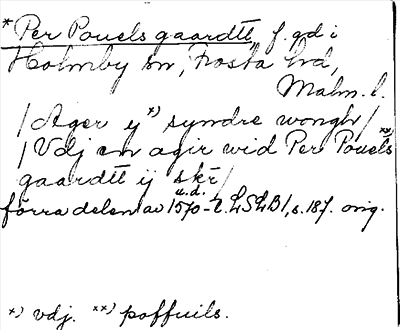 *Per Pouels gaardtt, f. gd i
Holmby sn, Frosta hd,
Malm. l.
/Ager ij *) syndre wongh/
/Vdj en agir wid Per Pouels **)
gaardtt ij skr/
u.d.
förra delen av 1570-t. LSLB1, s. 187. orig.
*) vdj. **) poffuils.